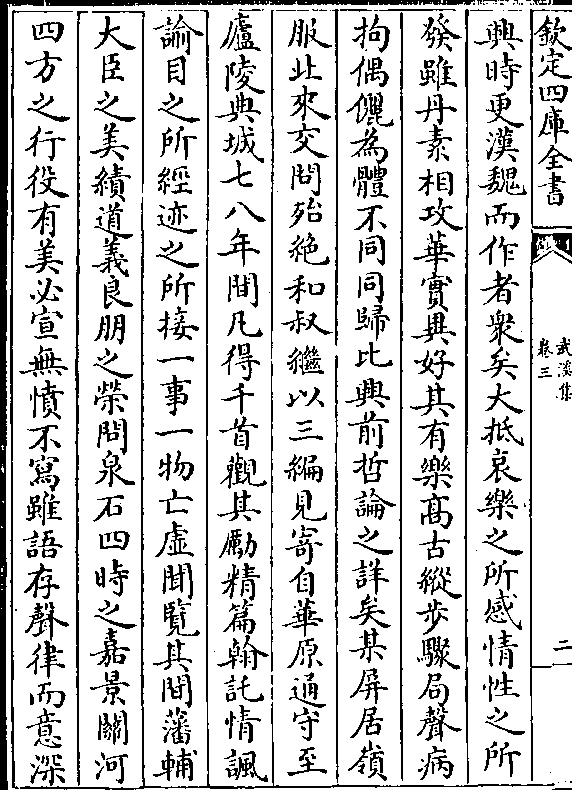 欽定四庫全書
武溪集
卷三
二
興時更漢魏而作者衆矣大抵哀樂之所感情性之所
發雖丹素相攻華實異好其有樂高古縱步驟局聲病
拘偶儷為體不同同歸比興前哲論之詳矣某屏居嶺
服北來交問殆絶和叔繼以三編見寄自華原通守至
廬陵典城七八年間凡得千首觀其勵精篇翰託情諷
諭目之所經迹之所接一事一物亡虛聞覽其間藩輔
大臣之美績道義良朋之榮問泉石四時之嘉景關河
四方之行役有美必宣無憤不寫雖語存聲律而意深